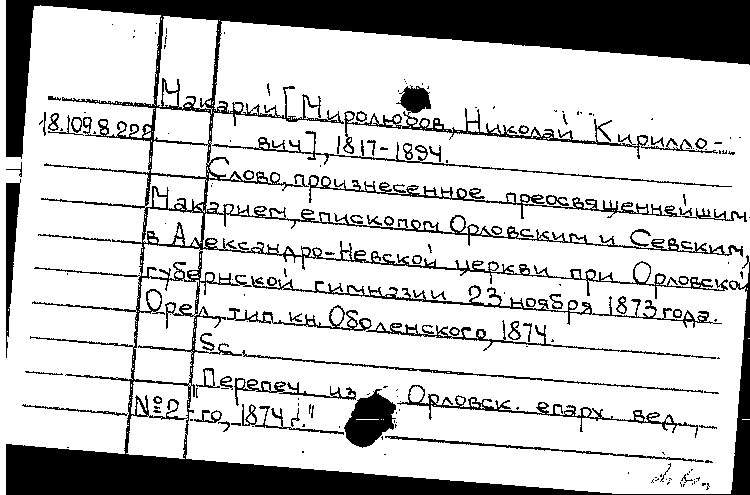 Макарий [Миролюбов, Николай Кирилло-
18.109.8.222 вич], 1817-1894.
Слово, произнесенное преосвященнейшим
Макарием, епископом Орловским и Севским,
в Александро-Невской церкви при Орловской
губернской гимназии 23 ноября 1873 года.
Орел, тип. кн. Оболенского, 1874.
5с.
"Перепеч. из Орловск. епарх. вед.,
№2-го, 1874 г."